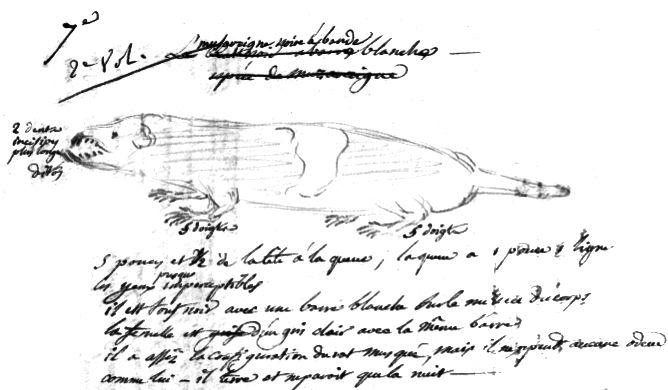 7e
2e Vol. L'musaraigne noire à bande
blanche
espèce de musaraigne
2 dents
incisives
plus longues
5 doigts
5 doigts
5 pouces et 1/2 de la tête à la queue, la queue a 1 pouce 1 ligne
les yeux presque imperceptibles
il est tout noir avec une barre blanche sur le milieu du corps
la femelle est d'un gris clair avec la même barre
il a assez la configuration du rat musqué, mais il ne répand aucune odeur
comme lui – il terre et ne paroit que la nuit —